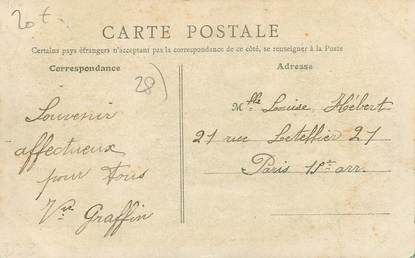 20 t
CARTE POSTALE
Certains pays étrangers n'acceptant pas la correspondance de ce côté, se renseigner à la Poste
Correspondance
28)
Souvenir
affectueux
pour Tous
Vve Graffin
Adresse
Mlle Louise Hébert
21 rue Letellier 21
Paris 15e arr.